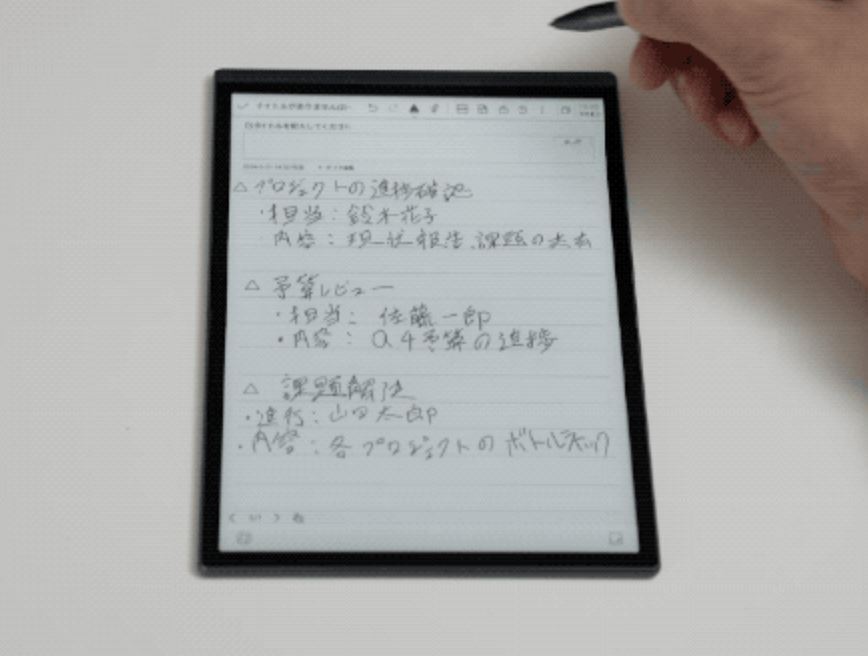 △ プロジェクトの進捗確認
・担当：鈴木花子
内容：現状報告、課題の共有
△ 予算レビュー
・担当： 佐藤一郎
・内容： Q4予算の進捗
△ 課題解決
・進行：山田太郎
・内容：各プロジェクトのボトルネック